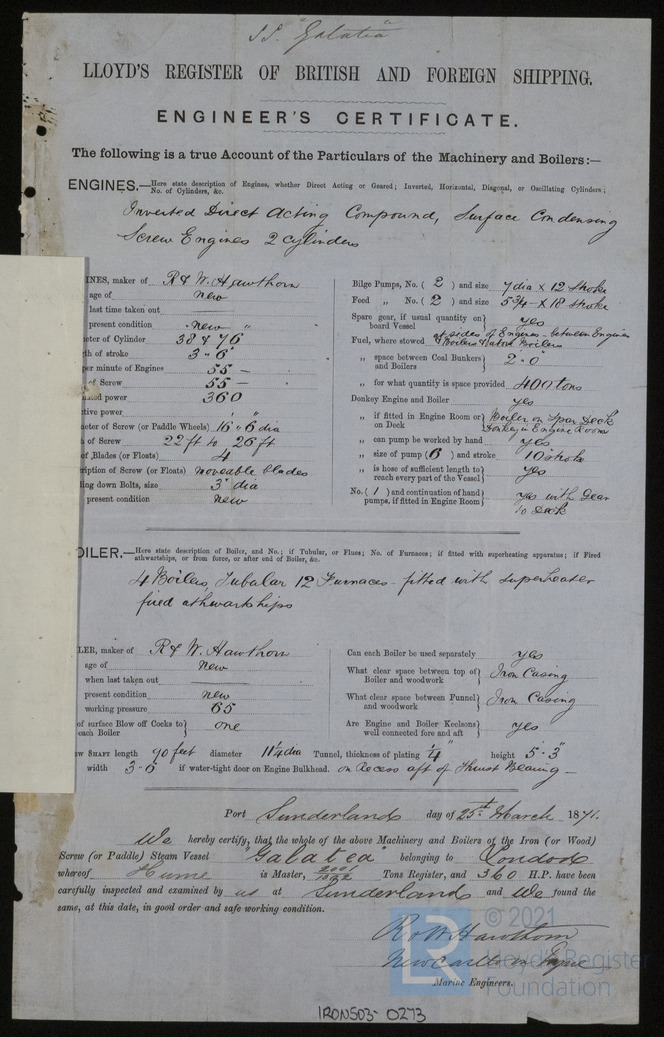 S.S. "Galatia"
LLOYD'S REGISTER OF BRITISH AND FOREIGN SHIPPING.
ENGINEER'S CERTIFICATE.
The following is a true Account of the Particulars of the Machinery and Boilers:—
ENGINES.—Here state description of Engines, whether Direct Acting or Geared; Inverted, Horizontal, Diagonal, or Oscillating Cylinders;
No. of Cylinders, &c.
Inverted Direct Acting Compound, Surface Condensing
Screw Engines 2 cylinders
INES, maker of R & W. Hawthorn
age of New
last time taken out
present condition New "
eter of Cylinder 38 & 76
th of stroke 3"-6"
per minute of Engines 55 —
of Screw 55 —
ated power 360
tive power
eter of Screw (or Paddle Wheels) 16"-6 dia
h of Screw 22 ft to 26 ft
of Blades (or Floats) 4
ription of Screw (or Floats) moveable blades
ing down Bolts, size 3" dia
present condition New
Bilge Pumps, No. ( 2 ) and size 7 dia x 12 stroke
Feed „ No. ( 2 ) and size 5 3/4 - X 18 stroke
Spare gear, if usual quantity on
board Vessel } yes
Fuel, where stowed at sides of Engines - between Engines
& Boilers & above Boilers
„ space between Coal Bunkers
and Boilers } 2"-0"
„ for what quantity is space provided 400 tons
Donkey Engine and Boiler yes
„ if fitted in Engine Room or
on Deck } Boiler on Spar Deck
Donkey in Engine Room
„ can pump be worked by hand yes
„ size of pump ( 6 ) and stroke 10" stroke
„ is hose of sufficient length to
reach every part of the Vessel } yes
No. ( 1 ) and continuation of hand
pumps, if fitted in Engine Room } yes with Gear
to Deck
OILER.—Here state description of Boiler, and No.; if Tubular, or Flues; No. of Furnaces; if fitted with superheating apparatus; if Fired
athwartships, or from force, or after end of Boiler, &c.
4 Boilers, Tubular 12 Furnaces - fitted with superheater
fired athwartships
LER, maker of R & W. Hawthorn
age of New
when last taken out
present condition new
working pressure 65
of surface Blow off Cocks to
each Boiler } one
Can each Boiler be used separately yes
What clear space between top of
Boiler and woodwork } Iron Casing
What clear space between Funnel
and woodwork } Iron Casing
Are Engine and Boiler Keelsons
well connected fore and aft } yes
ew SHAFT length 90 feet diameter 11 1/4 dia Tunnel, thickness of plating 1/4" height 5"-3"
width 3-6 if water-tight door on Engine Bulkhead. on Recess aft of Thrust Bearing —
Port Sunderland day of 25st March 1871.
We hereby certify, that the whole of the above Machinery and Boilers of the Iron (or Wood)
Screw (or Paddle) Steam Vessel "Galatea" belonging to London
whereof Hume is Master, Tons Register, and 360 H.P. have been
carefully inspected and examined by us at Sunderland and We found the
same, at this date, in good order and safe working condition.
R & W Hawthorn
Newcastle on Tyne
Marine Engineers.
© 2021
LR Lloyd's Register
Foundation
IRONS03-0273